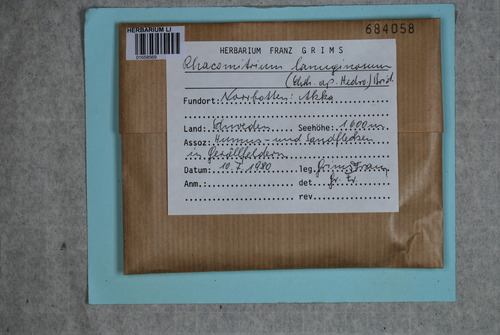 HERBARIUM LI
01658569
684058
HERBARIUM FRANZ GRIMS
Rhacomitrium lanuginosum
(Ehrh. ap. Hedw.) Brid
Fundort: Norrbotten: Akka
Land: Schweden Seehöhe: 1600m
Assoz: Humus- und Sandflecken
in Geröllfeldern
Datum: 10.7.1980 leg. Grims Franz
Anm.: det. Gr. Fr.
rev.